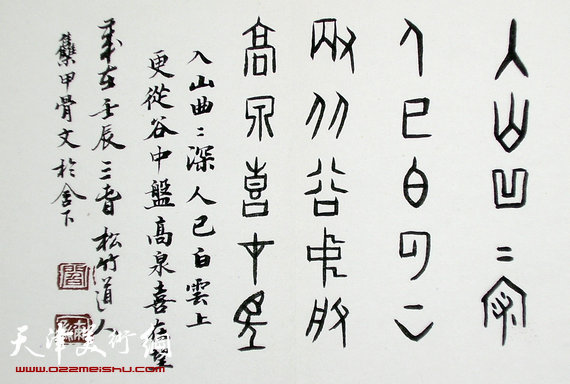 入山曲〻深
人已白雲上
更從谷中盤
高泉喜在望
入山曲〻深人已白雲上
更從谷中盤高泉喜在望
歲在壬辰三春松竹道人
集甲骨文於舍下
天津美術網
www.022meishu.com